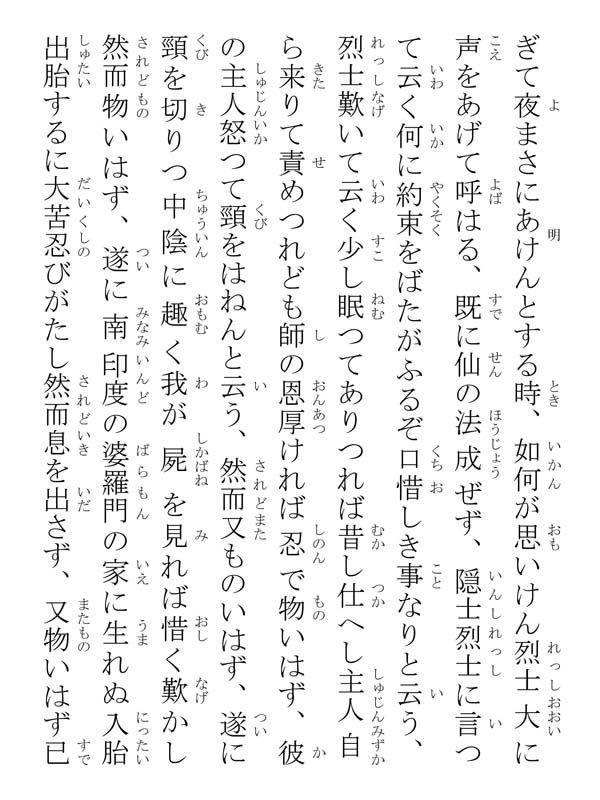 ぎて夜まさにあけんとする時、如何が思いけん烈士大に
声をあげて呼はる、既に仙の法成ぜず、隠士烈士に言つ
て云く何に約束をばたがふるぞ口惜しき事なりと云う、
烈士歎いて云く少し眠つてありつれば昔し仕へし主人自
ら来りて責めつれども師の恩厚ければ忍で物いはず、彼
の主人怒つて頸をはねんと云う、然而又ものいはず、遂に
頸を切りつ中陰に趣く我が屍を見れば惜く歎かし
然而物いはず、遂に南印度の婆羅門の家に生れぬ入胎
出胎するに大苦忍びがたし然而息を出さず、又物いはず已